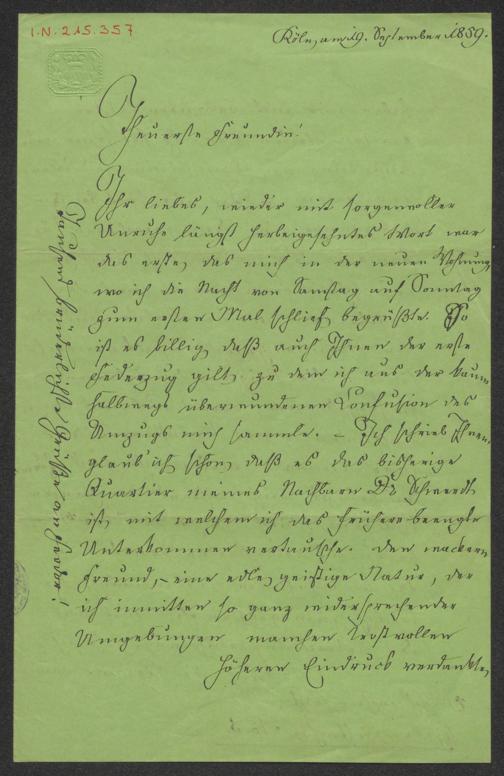 I.N. 215.357
Köln, am 19. September 1859.
Theuerste Freundin!
Ihr liebes, wieder mit sorgenvoller
Unruhe längst herbeigesehntes Wort war
das erste, das mich in der neuen Wohnung,
wo ich die Nacht von Samstag auf Sonntag
zum ersten Mal schlief, begrüßte. So
ist es billig, daß auch Ihnen der erste
Federzug gilt, zu dem ich aus der kaum
halbwegs überwundenen Confusion des
Umzugs mich sammle. – Ich schrieb Ihnen,
glaub' ich, schon, daß es das bisherige
Quartier meines Nachbarn Dr.
ist, mit welchem ich das frühere beengte
Unterkommen vertausche. Den wackern
Freund, – eine edle, geistige Natur, der
ich inmitten so ganz widersprechender
Umgebungen manchen trostvollen
höheren Eindruck verdankte,
Tausend Grüße an